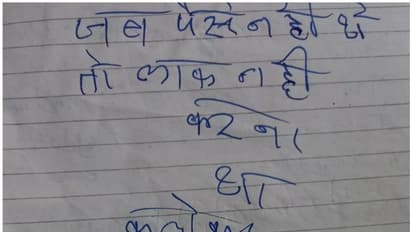 जब पैसे नही थे
तो लाक नही
करना
था